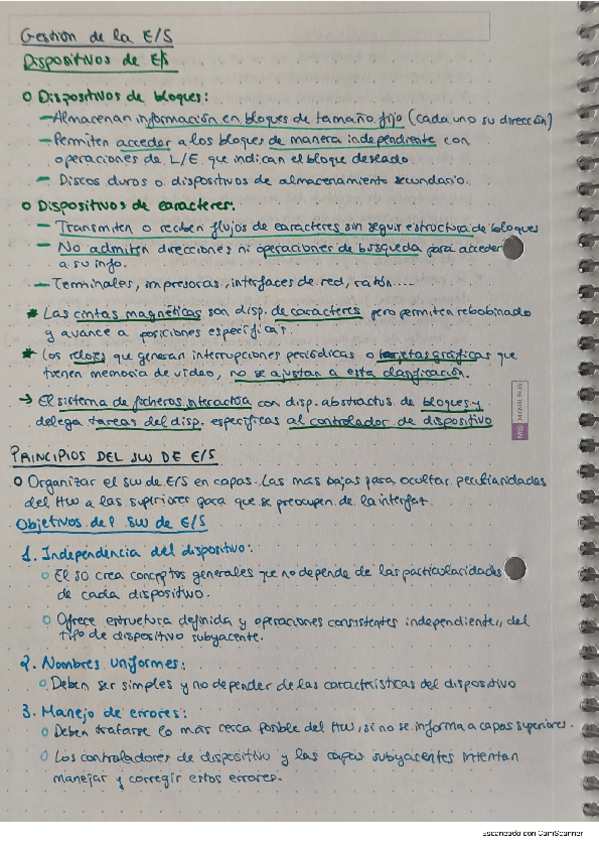 Gestión de la E/S
Dispositivos de E/S
o Dispositivos de bloques:
— Almacenan información en bloques de tamaño fijo (cada uno su dirección)
— Permiten acceder a los bloques de manera independiente con
operaciones de L/E que indican el bloque deseado.
— Discos duros o dispositivos de almacenamiento secundario.
o Dispositivos de caracteres:
— Transmiten o reciben flujos de caracteres sin seguir estructura de bloques
— No admiten direcciones ni operaciones de búsqueda para acceder
a su info.
— Terminales, impresoras, interfaces de red, ratón....
* Las cintas magnéticas son disp. de caracteres pero permiten rebobinado
y avance a posiciones específicas.
* Los relojes que generan interrupciones periódicas o tarjetas gráficas que
tienen memoria de vídeo, no se ajustan a esta clasificación.
→ El sistema de ficheros interactúa con disp. abstractos de bloques y
delega tareas del disp. específicas al controlador de dispositivo
MIQUELRIUS
PRINCIPIOS DEL SW DE E/S
o Organizar el sw de E/S en capas. Las más bajas para ocultar peculiaridades
del HW a las superiores para que se preocupen de la interfaz.
Objetivos del SW de E/S
1. Independencia del dispositivo:
o El SO crea conceptos generales que no depende de las particularidades
de cada dispositivo.
o Ofrece estructura definida y operaciones consistentes independient., del
tipo de dispositivo subyacente.
2. Nombres uniformes:
o Deben ser simples y no depender de las características del dispositivo
3. Manejo de errores:
o Deben tratarse lo más cerca posible del HW, si no se informa a capas superiores.
o Los controladores de dispositivo y las capas subyacentes intentan
manejar y corregir estos errores.
Escaneado con CamScanner